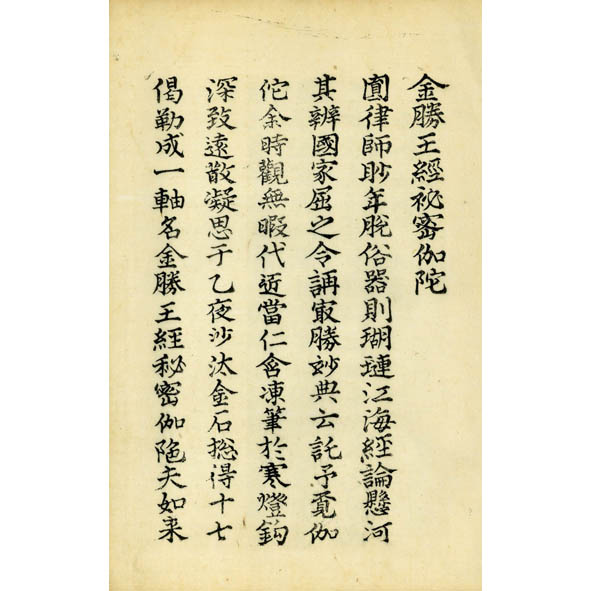 金勝王經祕密伽陀
圓律師眇年脫俗器則瑚璉江海經論懸河
其辨國家屈之令講最勝妙典云託予覓伽
佗余時觀無暇代近當仁含凍筆於寒燈鈎
深致遠散凝思于乙夜沙汰金石惣得十七
偈勒成一軸名金勝王經秘密伽陁夫如来